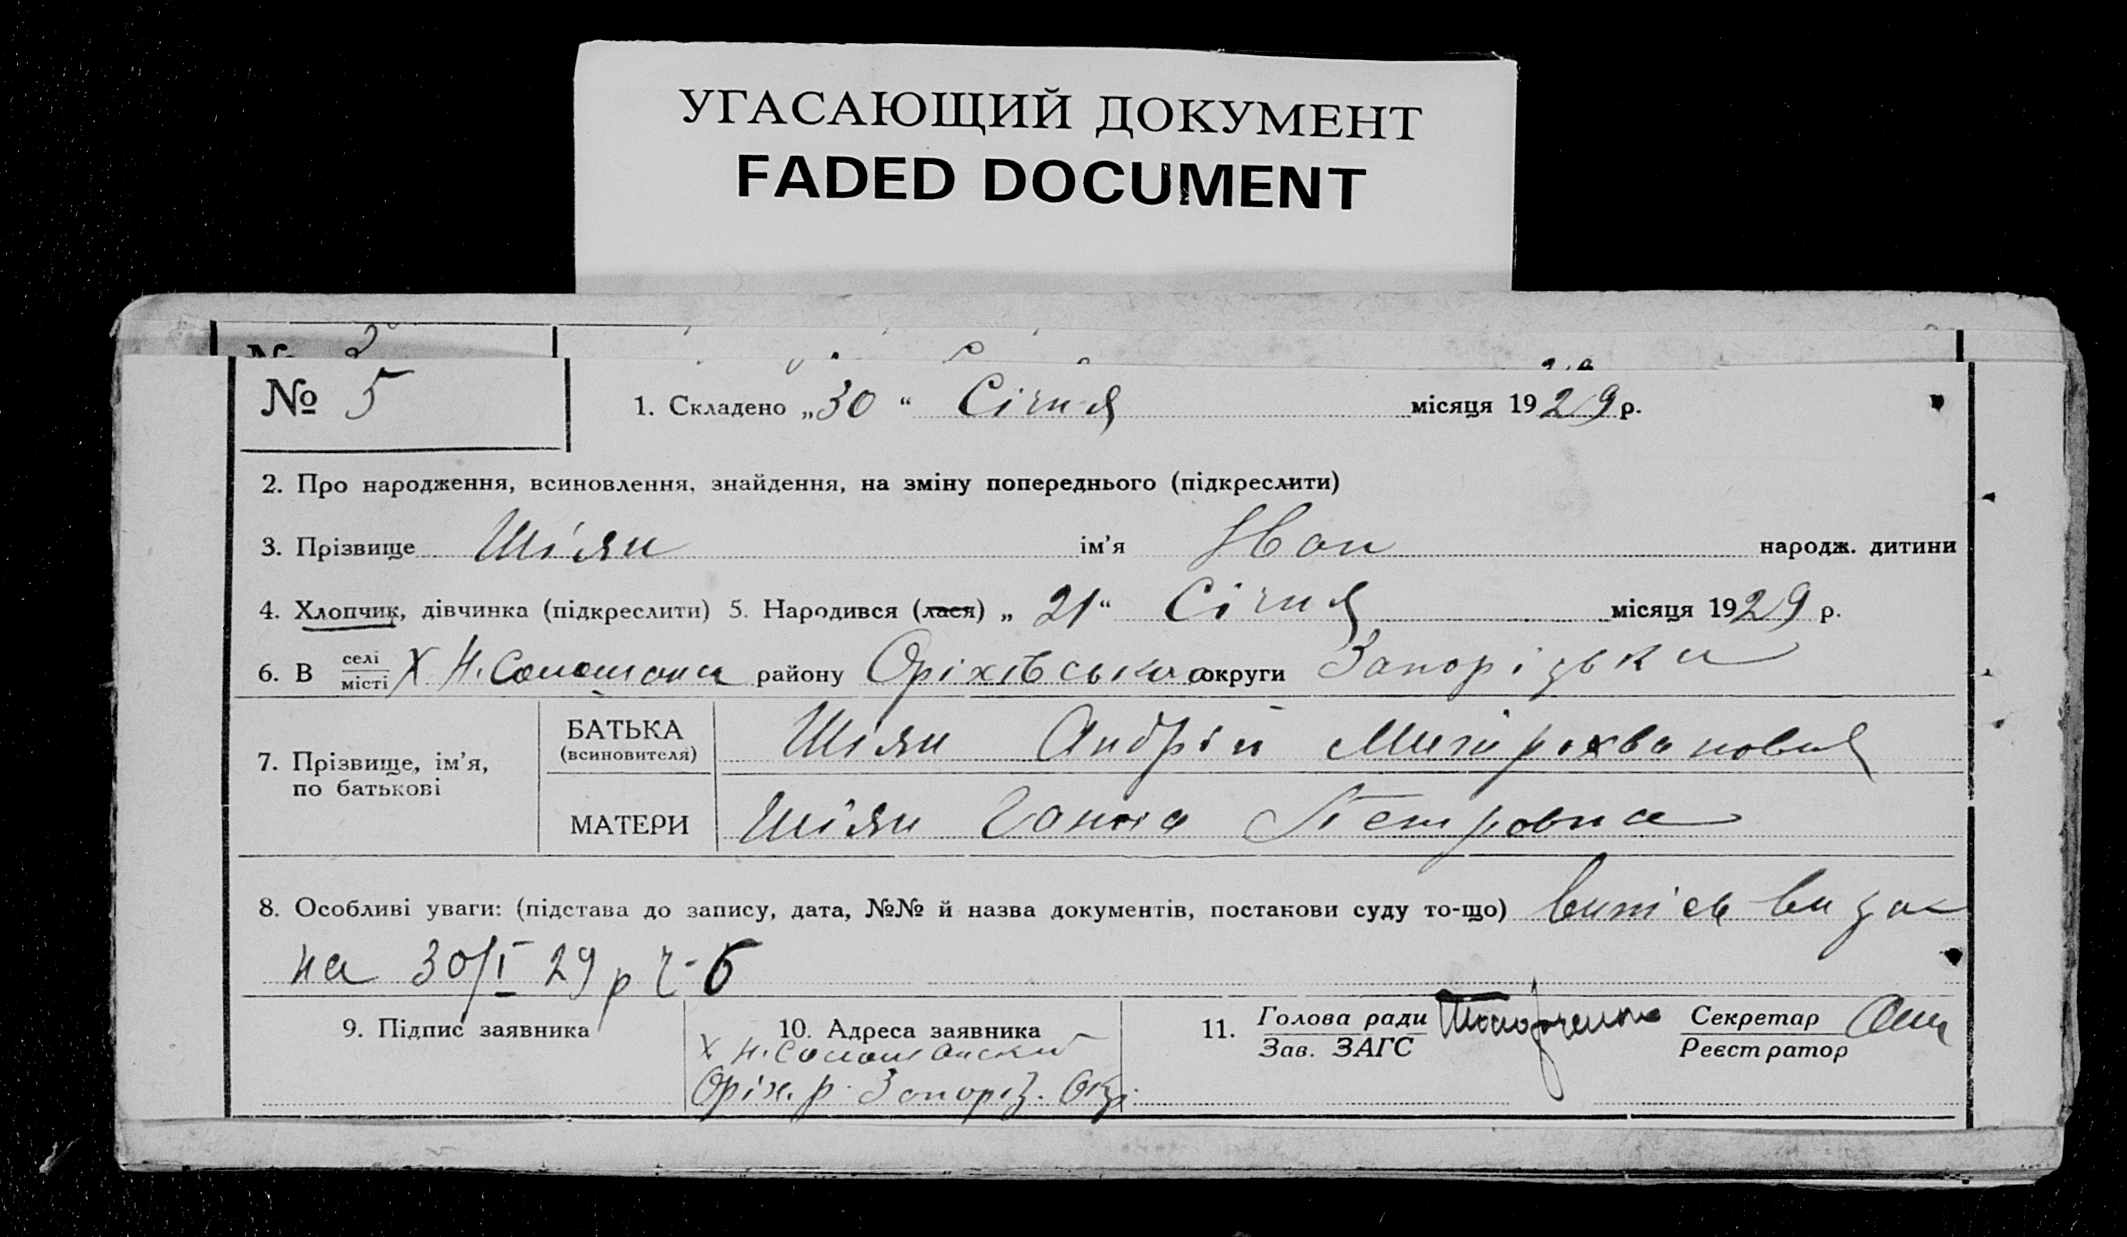 УГАСАЮЩИЙ ДОКУМЕНТ
FADED DOCUMENT
№ 5 1. Складено „30“ Січня місяця 1929 р.
2. Про народження, всиновлення, знайдення, на зміну попереднього (підкреслити)
3. Прізвище Шіян ім'я Іван народж. дитини
4. Хлопчик, дівчинка (підкреслити) 5. Народився (лася) „21“ Січня місяця 1929 р.
6. В селі місті Х Н. району Оріхівська округи Запорізька
7. Прізвище, ім'я, по батькові
БАТЬКА (всиновителя) Шіян Андрій
МАТЕРИ Шіян Ганна Петровна
8. Особливі уваги: (підстава до запису, дата, №№ й назва документів, постанови суду то-що) витісь вида
на 30/I 29 р ч-5
9. Підпис заявника 10. Адреса заявника 11. Голова ради Зав. ЗАГС Секретар Реєстратор
Х Н.
Оріх. р. Запоріз. Окр.